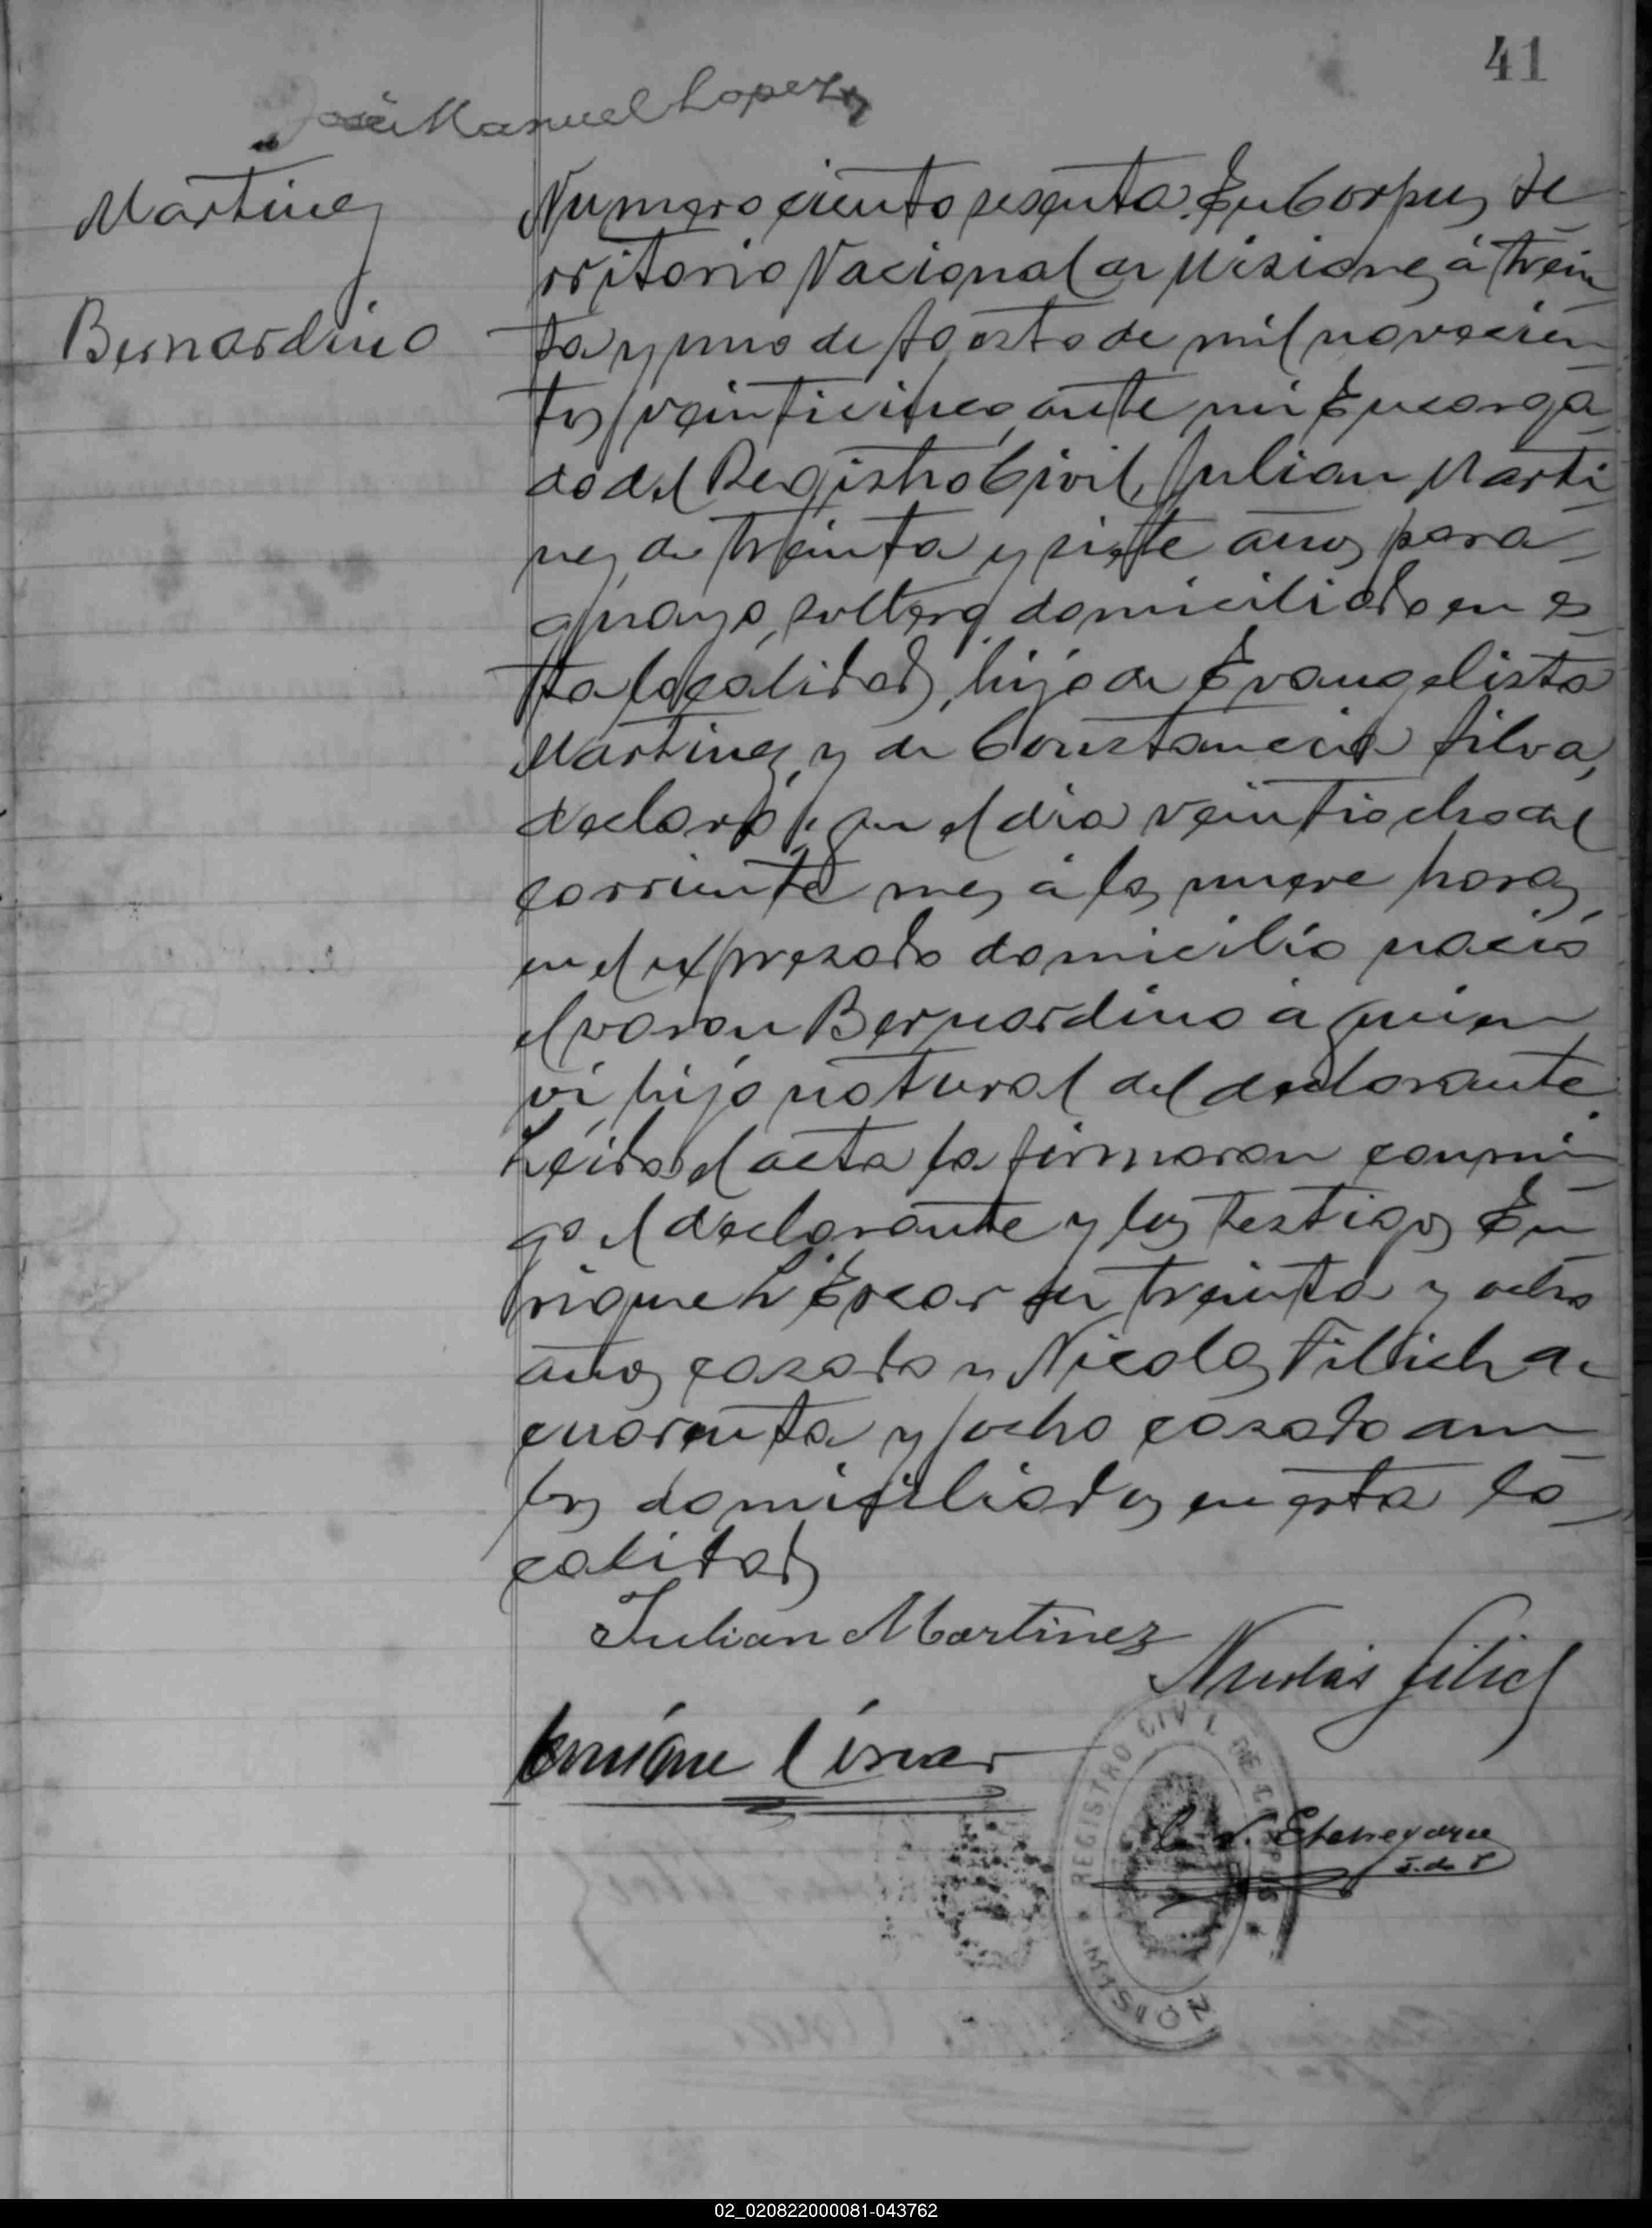 41
José Manuel Lopez
Martinez
Bernardino
Numero ciento sesenta. En Corpus, Te
rritorio Nacional de Misiones, á trein
ta y uno de Agosto de mil novecien
tos veinticinco, ante mi Encarga
do del Registro Civil, Julian Marti
nez, de treinta y siete años, para
guayo, soltero, domiciliado en es
ta localidad, hijo de Evangelista
Martinez, y de Constancia Silva,
declaró: que el dia veintiocho del
corriente mes á las nueve horas,
en el expresado domicilio nació
el varon Bernardino á quien
ví, hijo natural del declarante.
Leida el acta la firmaron conmi
go el declarante y los testigos En
rique L'Escar de treinta y ocho
años casado y Nicolas Filich de
cuarenta y ocho casado am
bos domiciliados en esta lo
calidad
Julian Martinez
Nicolás Filich
Enrique
REGISTRO CIVIL DE CORPUS
MISION
Etcheyarne
J. de P
02_020822000081-043762